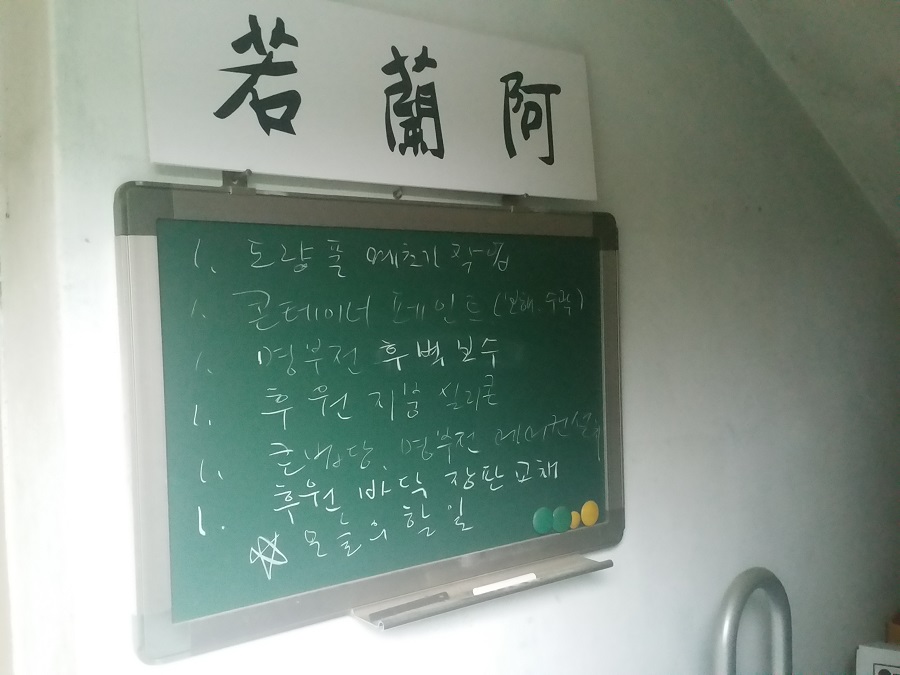 若 蘭 阿
1. 도량 풀 예초기 작업
1. 콘테이너 페인트 (
1. 명부전 후벽 보수
1. 후원 지붕 실리콘
1. 큰법당, 명부전 에어컨
1. 후원 바닥 장판 교채
☆ 오늘의 할 일